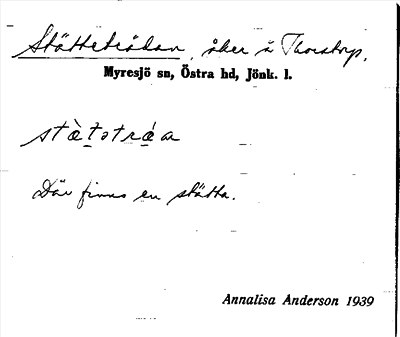 Stätteträdan, åker i Thorstorp.
Myresjö sn, Östra hd, Jönk. l.
Där finns en stätta.
Annalisa Anderson 1939